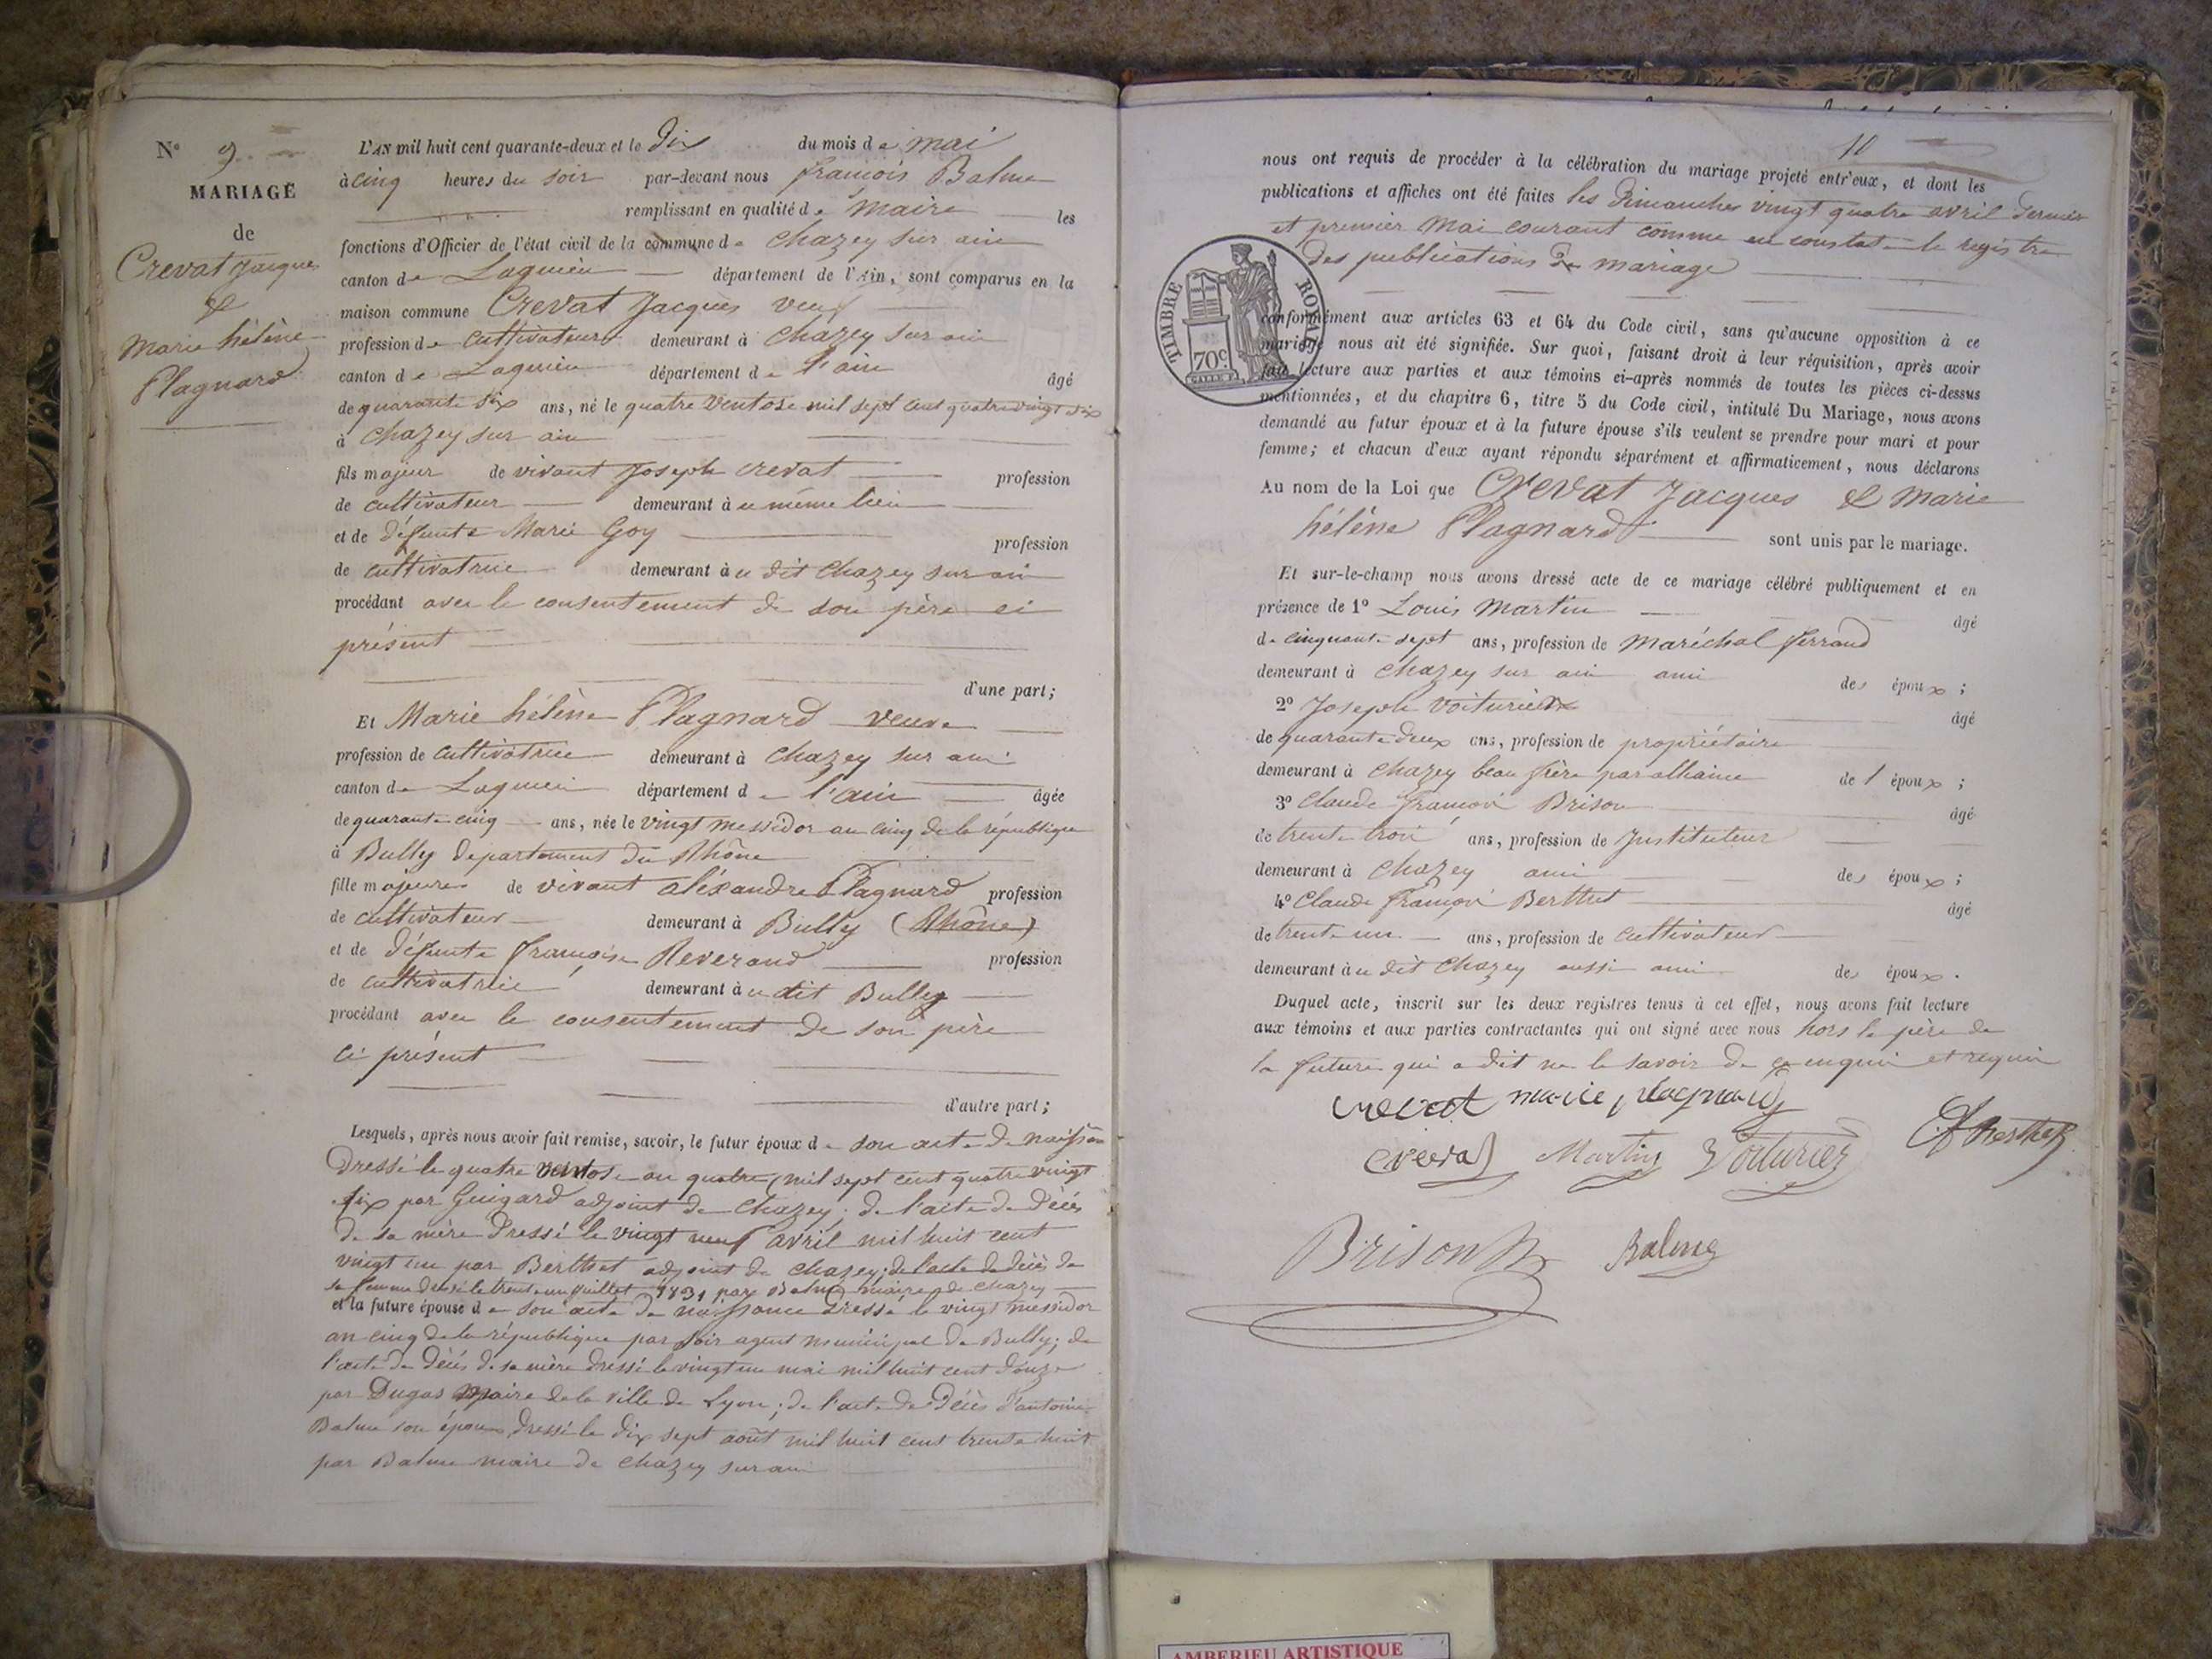 N° 9
MARIAGE
de
Crevat Jacques
&
Marie hélène
Plagnard
L'AN mil huit cent quarante-deux et le Dix du mois de mai
à cinq heures du soir par-devant nous françois Balme
remplissant en qualité de maire les
fonctions d'Officier de l'état civil de la commune de chazey sur ain
canton de Lagnieu département de l'Ain, sont comparus en la
maison commune Crevat Jacques veuf
profession de cultivateur demeurant à chazey sur ain
canton de Lagnieu département de l'ain âgé
de quarante six ans, né le quatre ventose mil sept cent quatrevingt six
à chazey sur ain
fils majeur de vivant Joseph crevat profession
de cultivateur demeurant à u même lieu
et de défunte Marie Goy profession
de cultivatrice demeurant à u dit chazey sur ain
procédant avec le consentement de son père ci
présent
d'une part;
Et Marie hélène Plagnard veuve
profession de cultivatrice demeurant à chazey sur ain
canton de Lagnieu département de l'ain âgée
de quarante cinq ans, née le vingt messidor an cinq de la république
à Bully departement du Rhône
fille majeure de vivant aléxandre Plagnard profession
de cultivateur demeurant à Bully (Rhône)
et de défunte françoise Reverand profession
de cultivatrice demeurant à u dit Bully
procédant avec le consentement de son père
ci présent
d'autre part;
Lesquels, après nous avoir fait remise, savoir, le futur époux de son acte de naissance
dressé le quatre ventose an quatre, mil sept cent quatre vingt
six par Guigard adjoint de chazey; de l'acte de décès
de sa mère dressé le vingt neuf avril mil huit cent
vingt un par Berthet adjoint de chazey; de l'acte de décès de
sa femme dressé le trente un juillet 1831 par Balme maire de chazey
et la future épouse de son acte de naissance dressé le vingt messidor
an cinq de la république par agent municipal de Bully; de
l'acte de décès de sa mère dressé le vingt un mai mil huit cent douze
par Dugas maire de la ville de Lyon; de l'acte de décès d'antoine
Balme son époux dressé le dix sept août mil huit cent trente huit
par Balme maire de chazey sur ain
10
nous ont requis de procéder à la célébration du mariage projeté entr'eux, et dont les
publications et affiches ont été faites les Dimanches vingt quatre avril dernier
et premier mai courant comme en constate le registre
des publications de mariage
TIMBRE ROYAL
70c.
conformément aux articles 63 et 64 du Code civil, sans qu'aucune opposition à ce
mariage nous ait été signifiée. Sur quoi, faisant droit à leur réquisition, après avoir
fait lecture aux parties et aux témoins ci-après nommés de toutes les pièces ci-dessus
mentionnées, et du chapitre 6, titre 5 du Code civil, intitulé Du Mariage, nous avons
demandé au futur époux et à la future épouse s'ils veulent se prendre pour mari et pour
femme; et chacun d'eux ayant répondu séparément et affirmativement, nous déclarons
Au nom de la Loi que Crevat Jacques & marie
hélène Plagnard sont unis par le mariage.
Et sur-le-champ nous avons dressé acte de ce mariage célébré publiquement et en
présence de 1° Louis Martin âgé
de cinquante sept ans, profession de maréchal ferrand
demeurant à chazey sur ain ami des époux;
2° Joseph Voiturier âgé
de quarante deux ans, profession de propriétaire
demeurant à chazey beau frère par alliance de l'époux;
3° Claude françois Brison âgé
de trente trois ans, profession de Instituteur
demeurant à chazey ami des époux;
4° Claude françois Berthet âgé
de trente un ans, profession de cultivateur
demeurant à u dit chazey aussi ami des époux.
Duquel acte, inscrit sur les deux registres tenus à cet effet, nous avons fait lecture
aux témoins et aux parties contractantes qui ont signé avec nous hors le père de
la future qui a dit ne le savoir de ce enquis et requis
crevat marie plagnard
crevat Martin Voiturier Cf Berthet
Brison Balme
AMBERIEU ARTISTIQUE